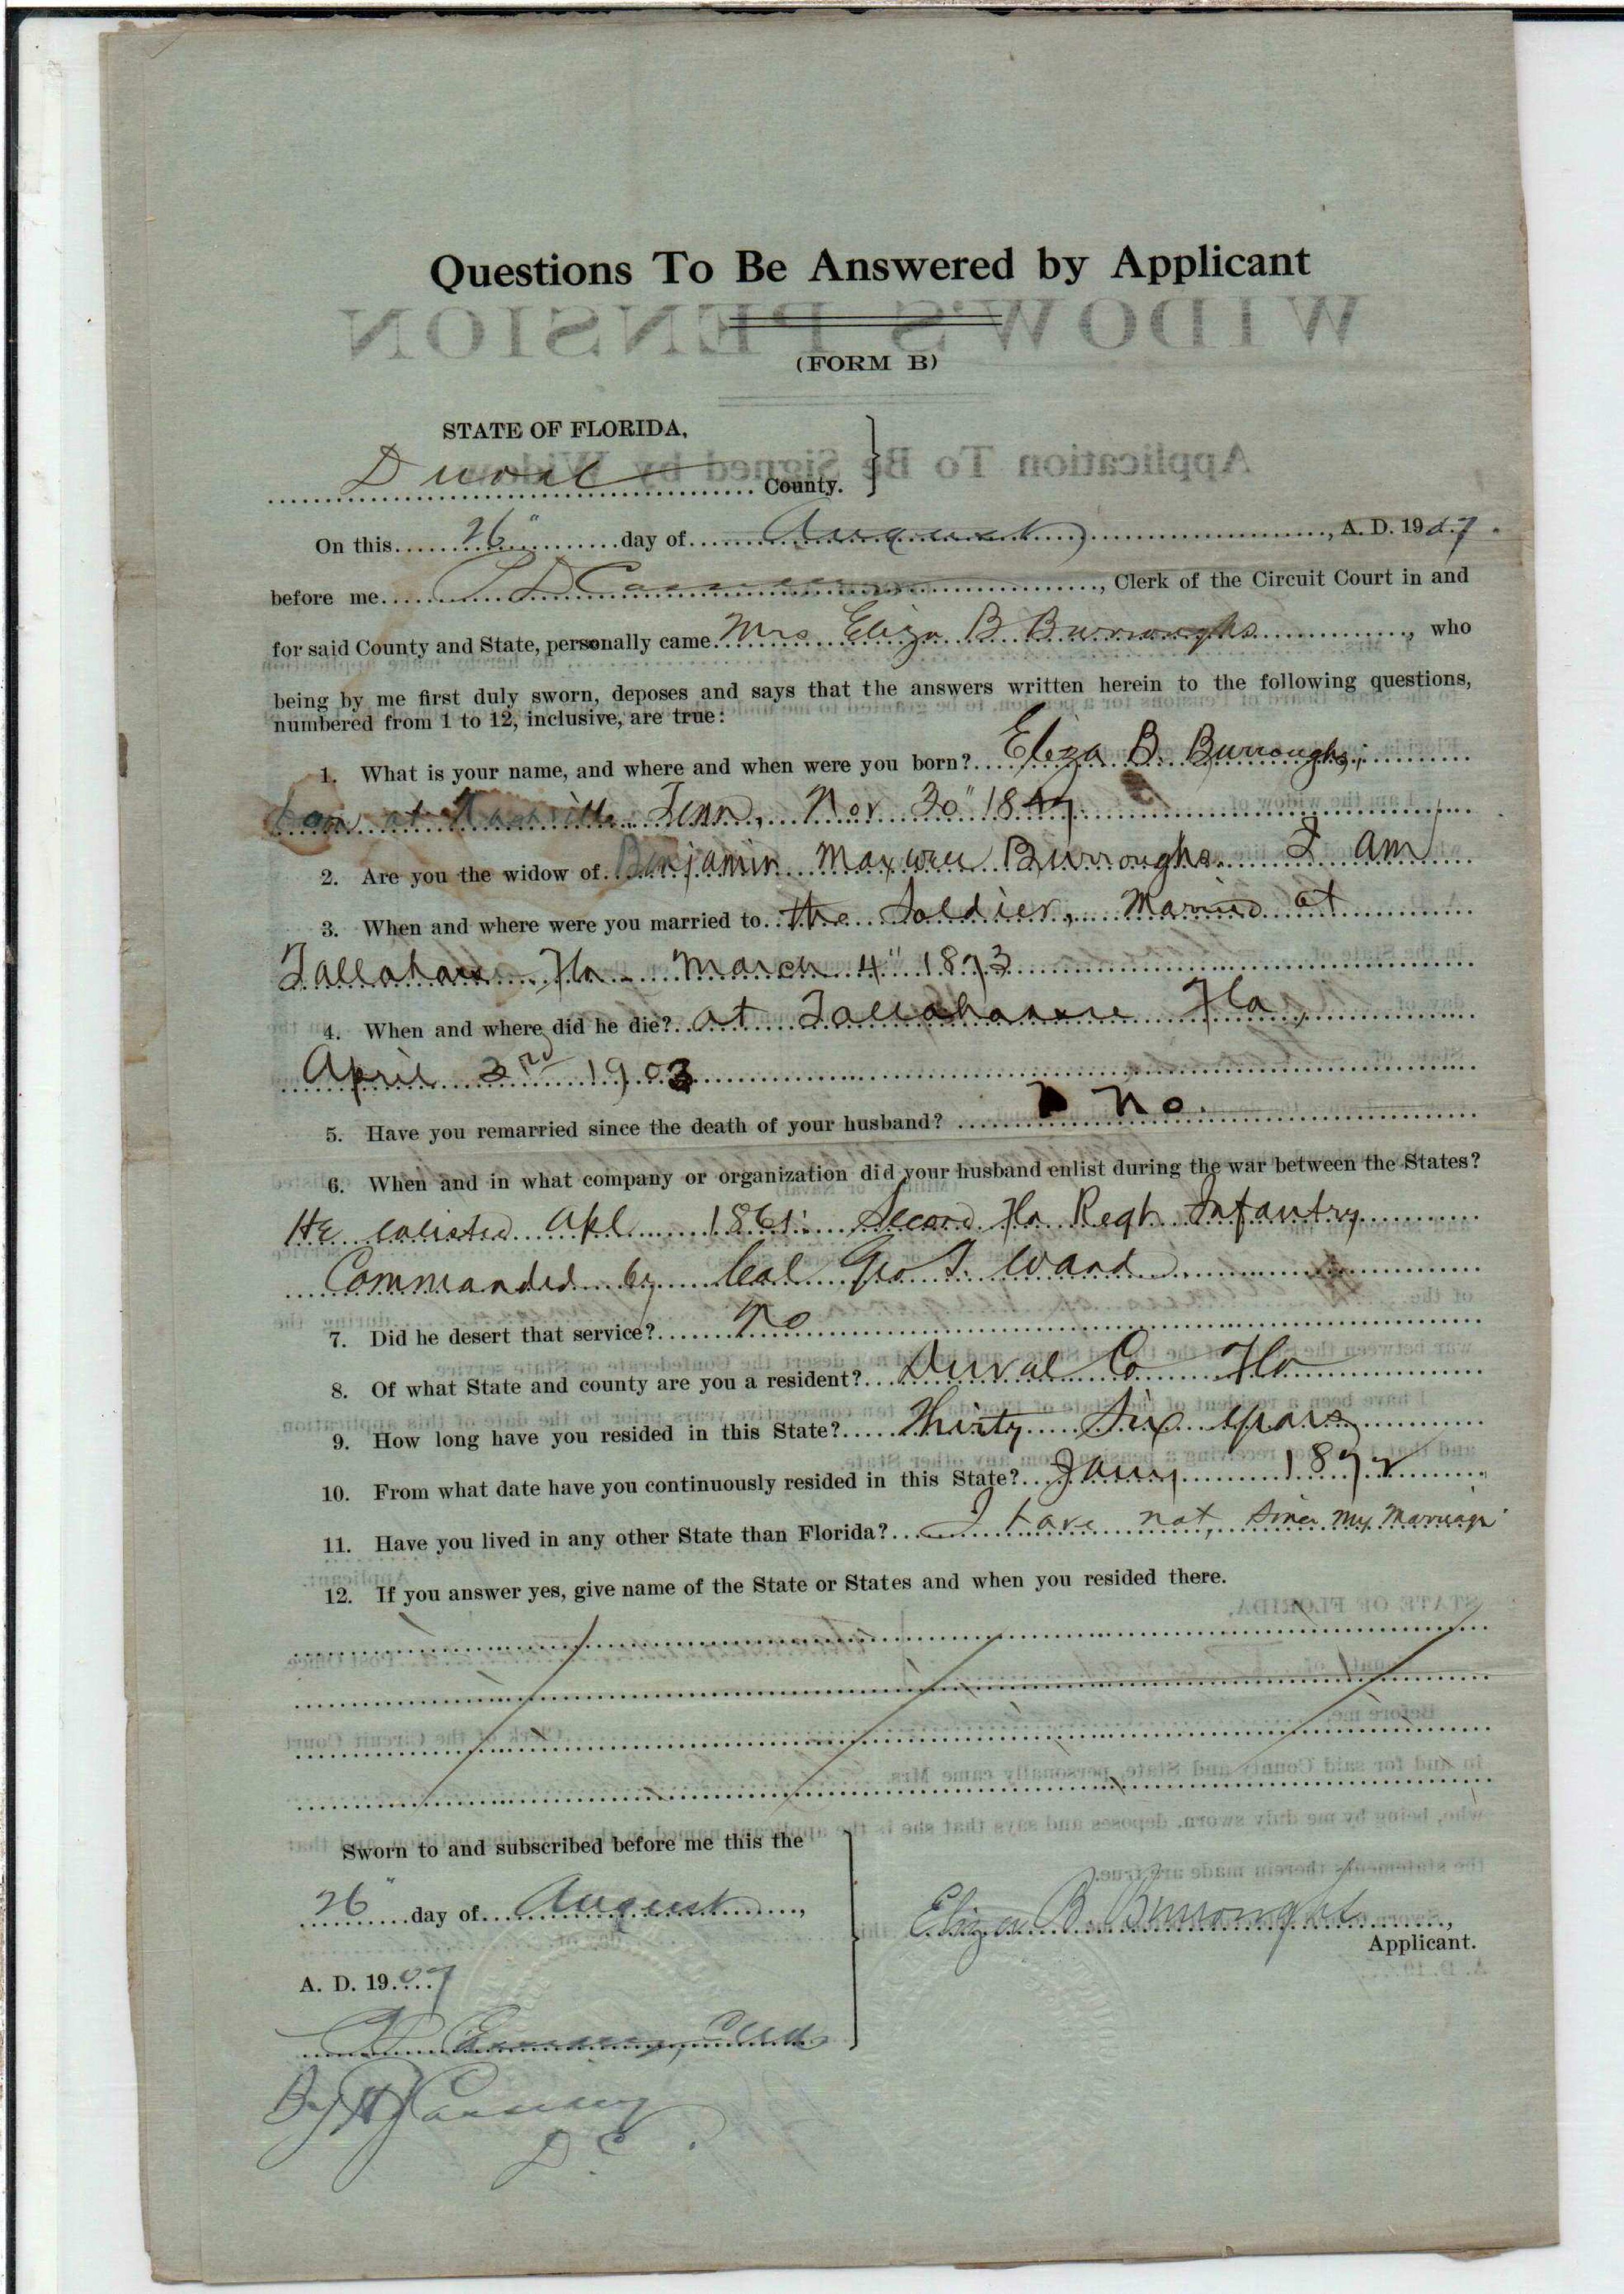 Questions To Be Answered by Applicant
WIDOW'S PENSION
(FORM B)
STATE OF FLORIDA,
Application To Be Signed by Widow
Duval County.
On this 26" day of August, A. D. 1907.
before me, Clerk of the Circuit Court in and
for said County and State, personally came Mrs Eliza B Burroughs, who
being by me first duly sworn, deposes and says that the answers written herein to the following questions,
numbered from 1 to 12, inclusive, are true:
1. What is your name, and where and when were you born? Eliza B. Burroughs,
born at Nashville Tenn, Nov 30" 1847
2. Are you the widow of Benjamin Maxwell Burroughs. I am
3. When and where were you married to the Soldier, Married at
Tallahassee Fla March 4" 1873
4. When and where did he die? at Tallahassee Fla,
April 3rd 1903
5. Have you remarried since the death of your husband? No.
6. When and in what company or organization did your husband enlist during the war between the States?
He enlisted Apl 1861. Second Fla Regt Infantry
Commanded by Col Geo T. Ward
7. Did he desert that service? No
8. Of what State and county are you a resident? Duval Co Fla
9. How long have you resided in this State? Thirty Six years
10. From what date have you continuously resided in this State? Jany 1872
11. Have you lived in any other State than Florida? I have not, since my Marriage
12. If you answer yes, give name of the State or States and when you resided there.
Sworn to and subscribed before me this the
26" day of August,
A. D. 1907
Eliza B. Burroughs,
Applicant.
By
D.C.